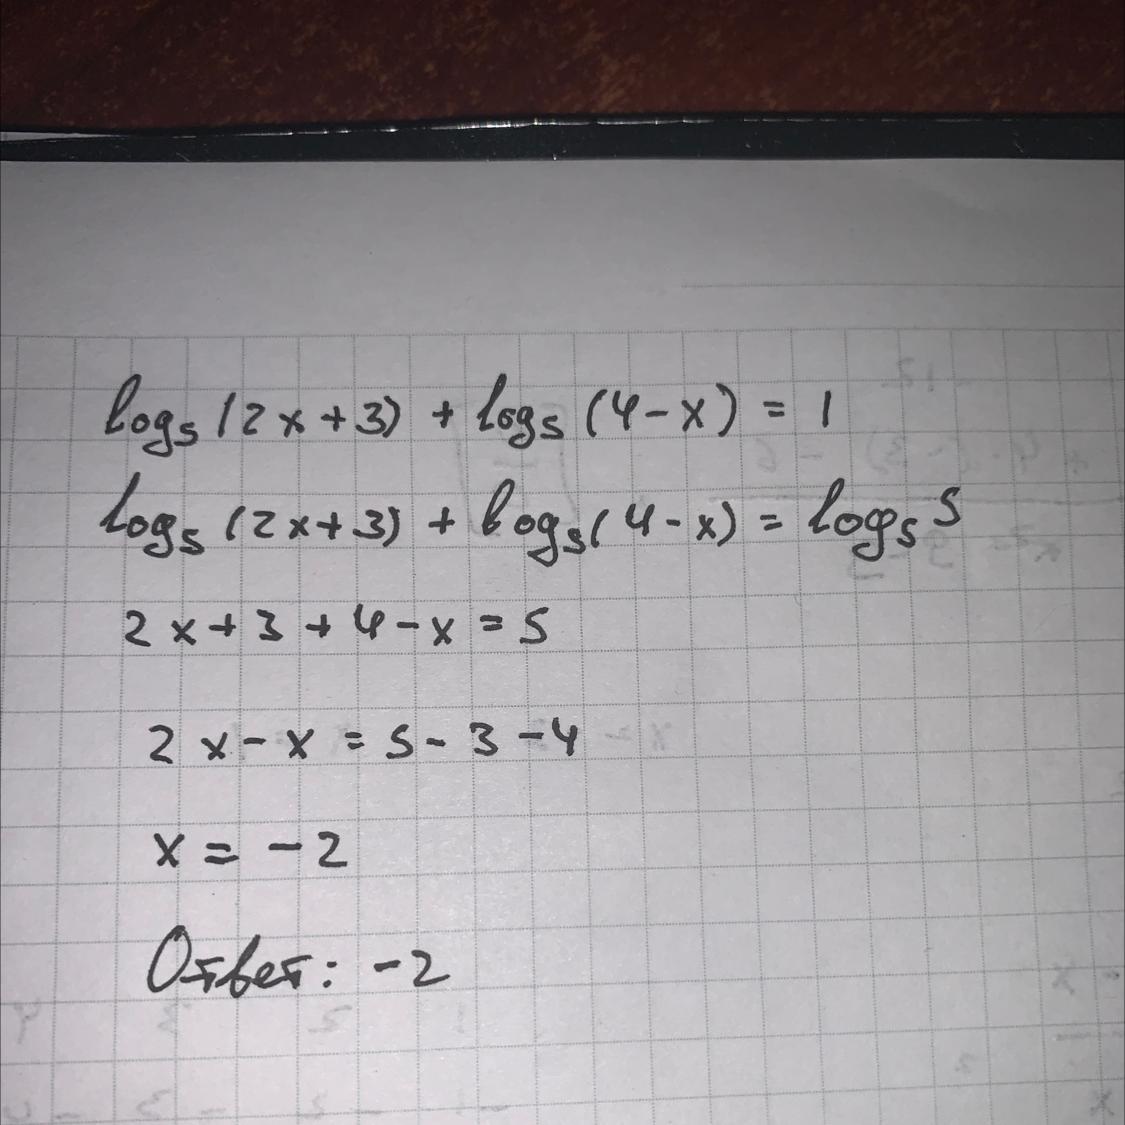 log₅(2x+3) + log₅(4-x) = 1
log₅(2x+3) + log₅(4-x) = log₅5
2x+3+4-x=5
2x-x=5-3-4
x=-2
Ответ: -2